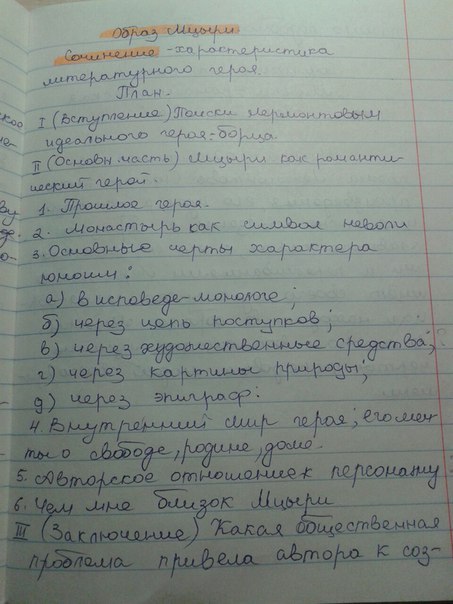 Образ Мцыри
Сочинение-характеристика
литературного героя.
План.
I (Вступление) Поиски Лермонтовым
идеального героя-борца.
II (Основн. часть) Мцыри как романти-
ческий герой.
1. Прошлое героя.
2. Монастырь как символ неволи
3. Основные черты характера
юноши:
а) в исповеде-монологе;
б) через цепь поступков;
в) через художественные средства;
г) через картины природы;
д) через эпиграф:
4. Внутренний мир героя; его меч-
ты о свободе, родине, доме.
5. Авторское отношение к персонажу
6. Чем мне близок Мцыри
III (Заключение) Какая общественная
проблема привела автора к соз-